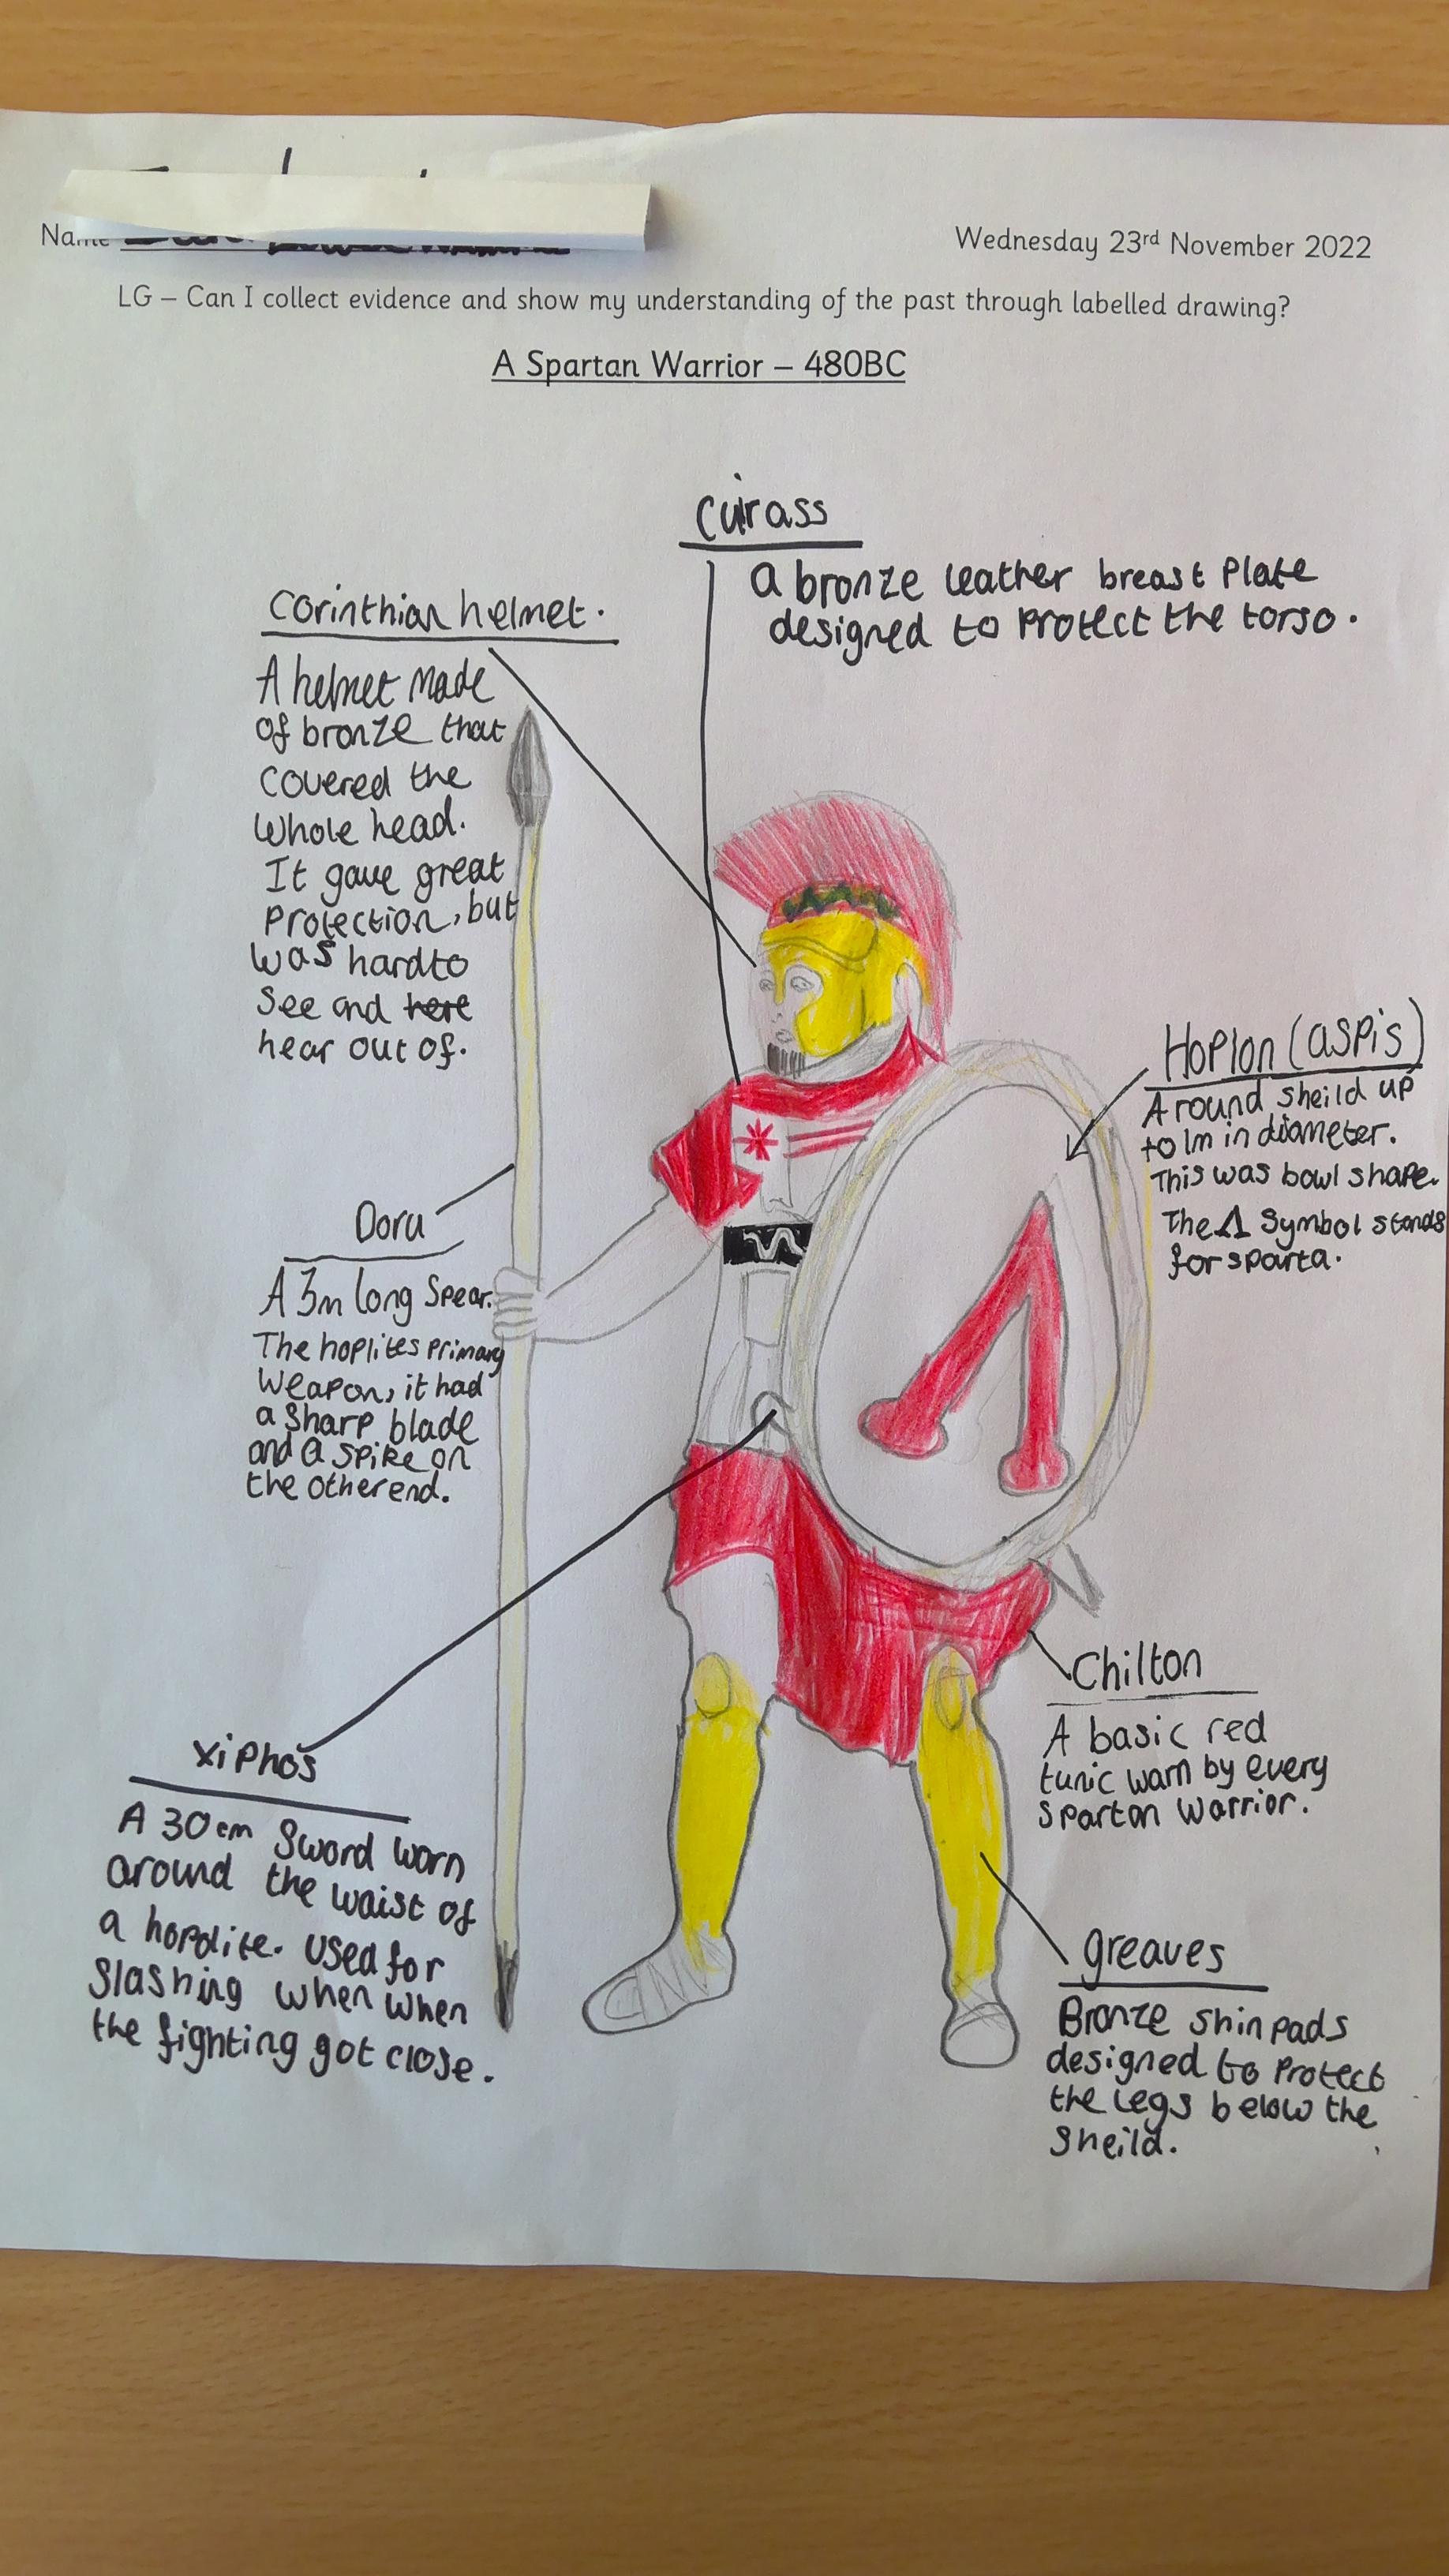 Name
Wednesday 23rd November 2022
LG – Can I collect evidence and show my understanding of the past through labelled drawing?
A Spartan Warrior – 480BC
Cuirass
a bronze leather breast plate
designed to protect the torso.
Corinthian helmet.
A helmet made
of bronze that
covered the
whole head.
It gave great
protection, but
was hard to
see and here
hear out of.
Hoplon (aspis)
A round sheild up
to 1m in diameter.
This was bowl shape.
The Λ symbol stands
for sparta.
Λ
Doru
A 3m long spear.
The hoplites primary
weapon, it had
a sharp blade
and a spike on
the other end.
Chilton
A basic red
tunic warn by every
spartan warrior.
xiphos
A 30cm sword worn
around the waist of
a hopolite. used for
slashing when when
the fighting got close.
greaves
Bronze shin pads
designed to protect
the legs below the
sheild.